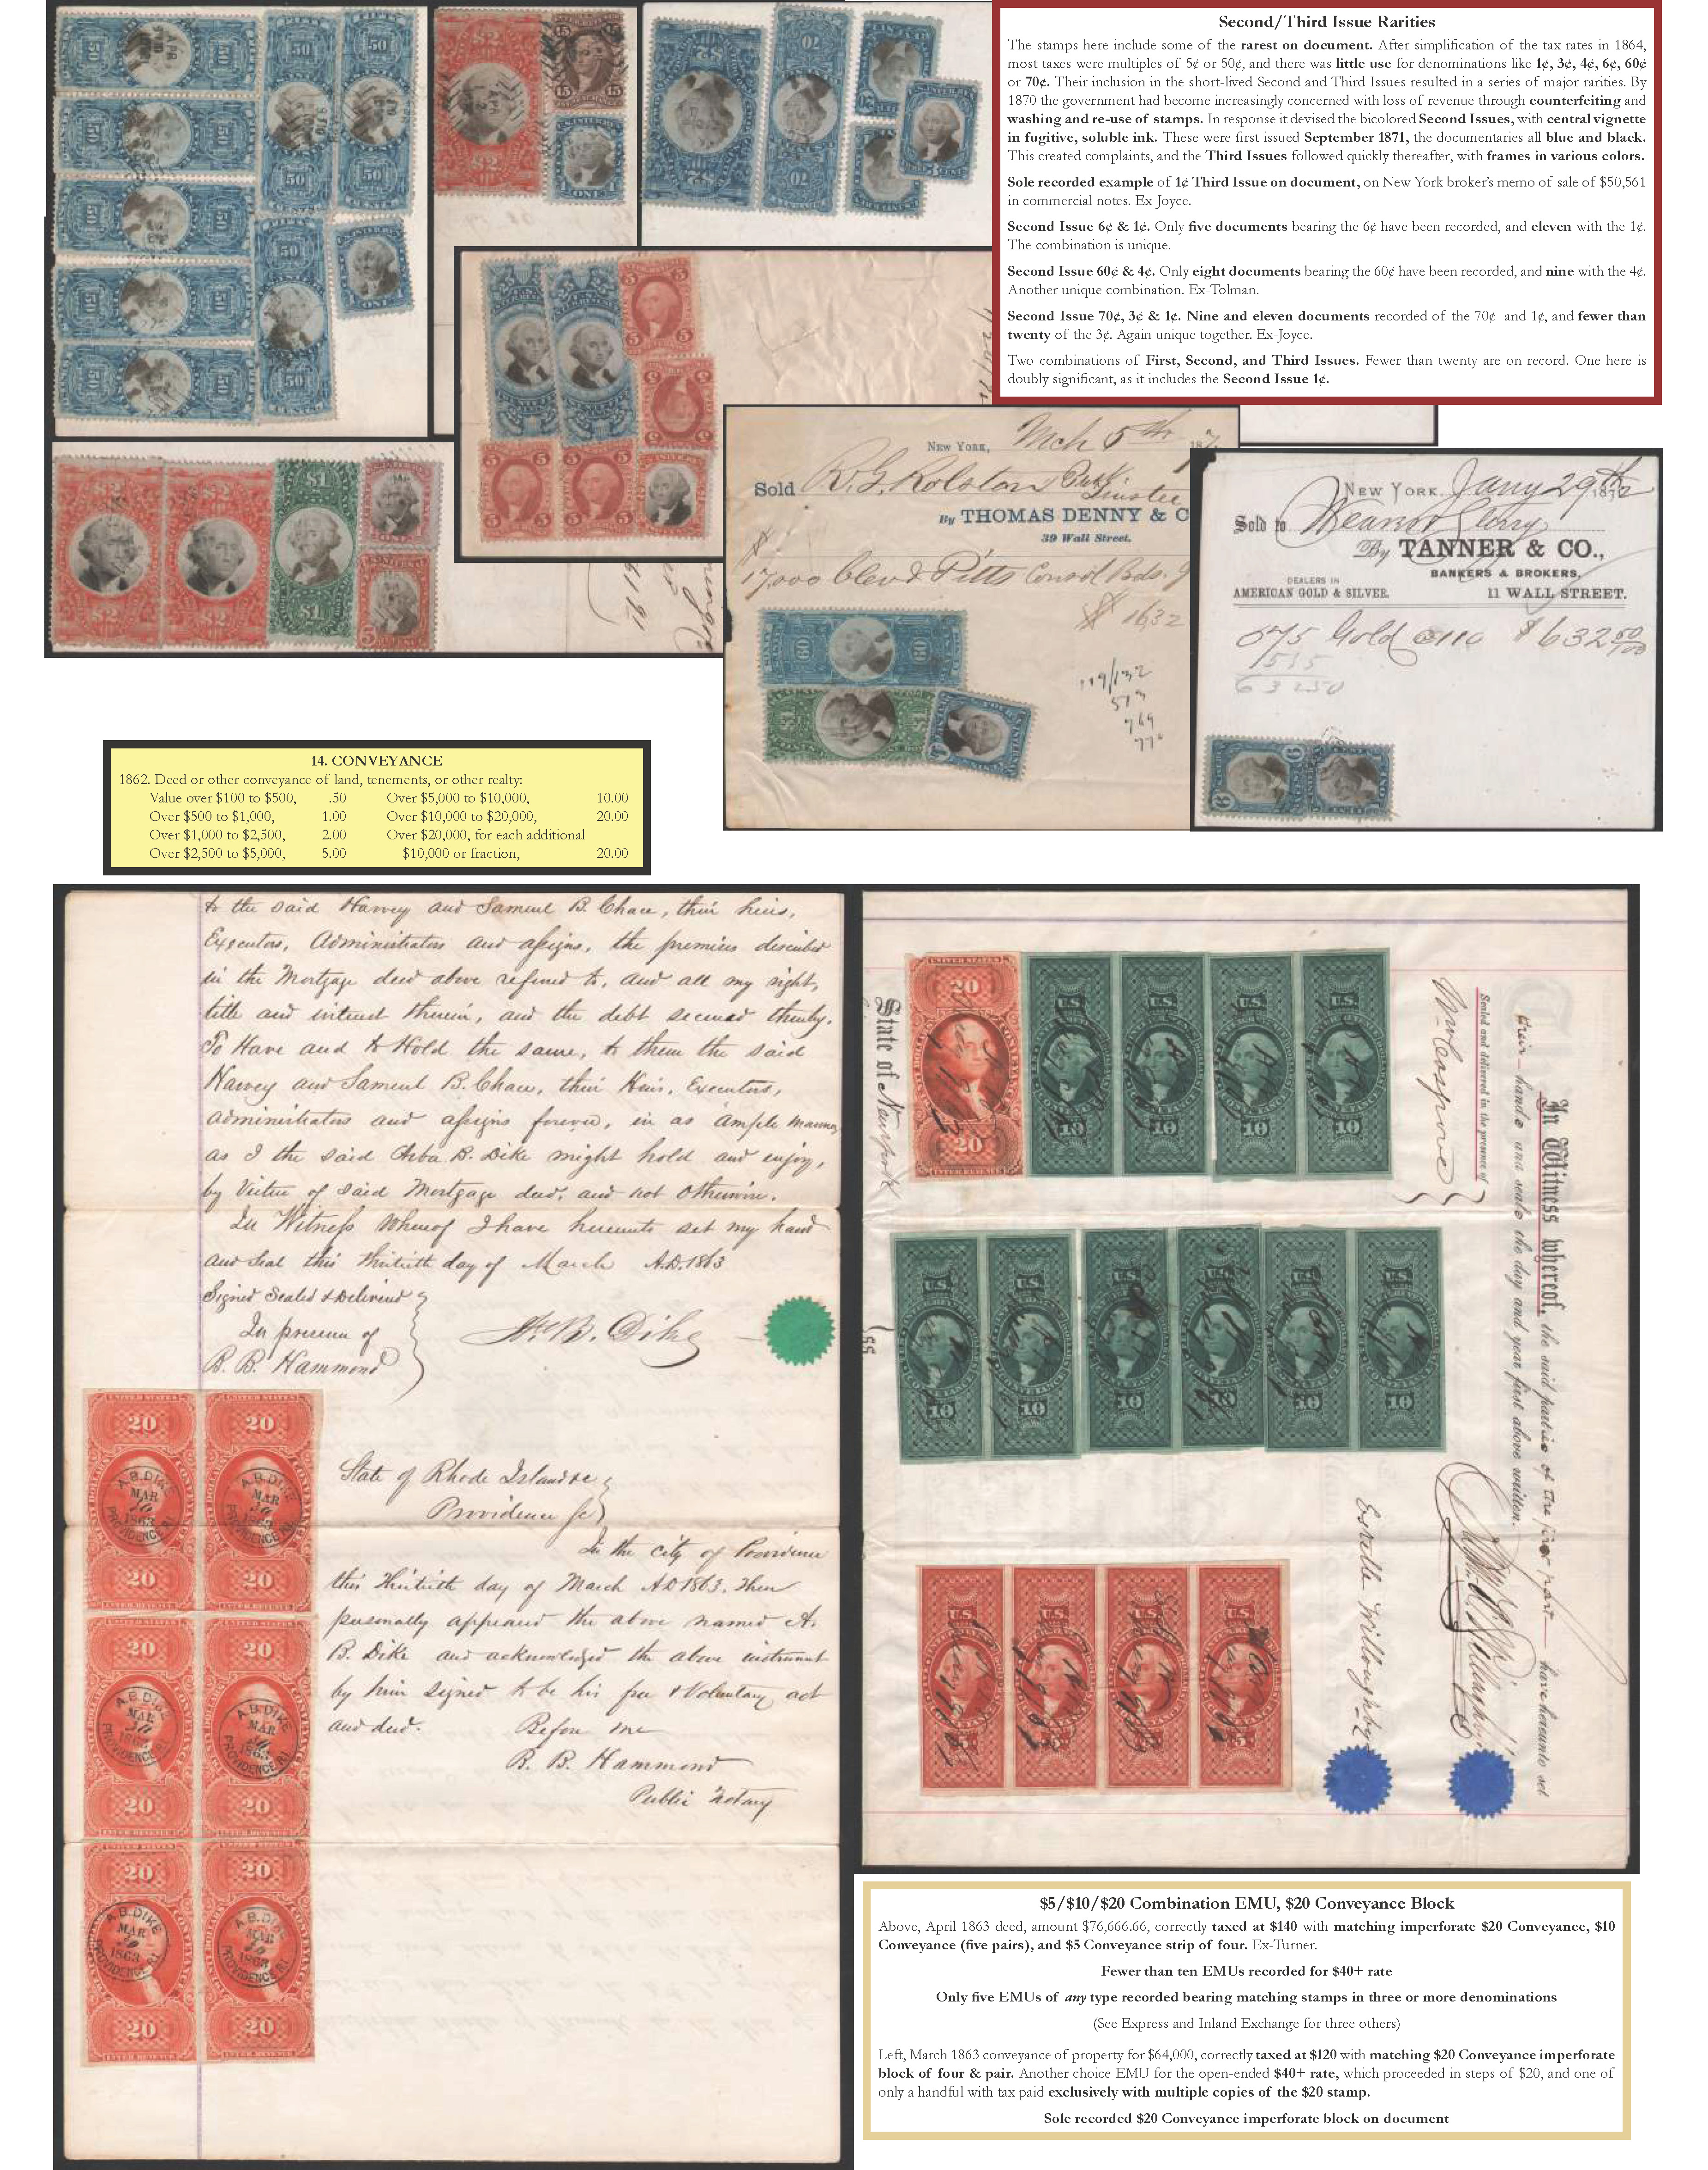 Second/Third Issue Rarities
The stamps here include some of the rarest on document. After simplification of the tax rates in 1864,
most taxes were multiples of 5¢ or 50¢, and there was little use for denominations like 1¢, 3¢, 4¢, 6¢, 60¢
or 70¢. Their inclusion in the short-lived Second and Third Issues resulted in a series of major rarities. By
1870 the government had become increasingly concerned with loss of revenue through counterfeiting and
washing and re-use of stamps. In response it devised the bicolored Second Issues, with central vignette
in fugitive, soluble ink. These were first issued September 1871, the documentaries all blue and black.
This created complaints, and the Third Issues followed quickly thereafter, with frames in various colors.
Sole recorded example of 1¢ Third Issue on document, on New York broker's memo of sale of $50,561
in commercial notes. Ex-Joyce.
Second Issue 6¢ & 1¢. Only five documents bearing the 6¢ have been recorded, and eleven with the 1¢.
The combination is unique.
Second Issue 60¢ & 4¢. Only eight documents bearing the 60¢ have been recorded, and nine with the 4¢.
Another unique combination. Ex-Tolman.
Second Issue 70¢, 3¢ & 1¢. Nine and eleven documents recorded of the 70¢ and 1¢, and fewer than
twenty of the 3¢. Again unique together. Ex-Joyce.
Two combinations of First, Second, and Third Issues. Fewer than twenty are on record. One here is
doubly significant, as it includes the Second Issue 1¢.
New York, Mch 5th 187
Sold R. G. Rolston Trustee
By THOMAS DENNY & C
39 Wall Street.
17,000 Clev & Pitts Consol Bds.
$ 1632
NEW YORK, Jany 29th 1872
Sold to
By TANNER & CO.,
BANKERS & BROKERS,
DEALERS IN
AMERICAN GOLD & SILVER. 11 WALL STREET.
575 Gold @110 $632 50/100
63250
14. CONVEYANCE
1862. Deed or other conveyance of land, tenements, or other realty:
Value over $100 to $500, .50 Over $5,000 to $10,000, 10.00
Over $500 to $1,000, 1.00 Over $10,000 to $20,000, 20.00
Over $1,000 to $2,500, 2.00 Over $20,000, for each additional
Over $2,500 to $5,000, 5.00 $10,000 or fraction, 20.00
to the said Harvey and Samuel B. Chace, their heirs,
Executors, Administrators and assigns, the premises described
in the Mortgage deed above refered to, and all my right,
title and interest therein, and the debt secured thereby.
To Have and to Hold the same, to them the said
Harvey and Samuel B. Chace, their Heirs, Executors,
administrators and assigns forever, in as ample manner
as I the said Arba B. Dike might hold and enjoy,
by Virtue of said Mortgage deed, and not otherwise.
In Witness Whereof I have hereunto set my hand
and seal this thirtieth day of March A.D. 1863
Signed Sealed & Delivered
In presence of
B. B. Hammond
A. B. Dike
State of Rhode Island &c
Providence Sc
In the city of Providence
this Thirtieth day of March AD 1863. Then
personally appeared the above named A.
B. Dike and acknowledged the above instrument
by him signed to be his free & Voluntary act
and deed. Before me
B. B. Hammond
Public Notary
A. B. DIKE
MAR
30
1863
PROVIDENCE R.I.
In Witness whereof, the said parties of the first part have hereunto set
their hands and seals the day and year first above written.
Sealed and delivered in the presence of
State of New York
ss
Estelle Willoughby
$5/$10/$20 Combination EMU, $20 Conveyance Block
Above, April 1863 deed, amount $76,666.66, correctly taxed at $140 with matching imperforate $20 Conveyance, $10
Conveyance (five pairs), and $5 Conveyance strip of four. Ex-Turner.
Fewer than ten EMUs recorded for $40+ rate
Only five EMUs of any type recorded bearing matching stamps in three or more denominations
(See Express and Inland Exchange for three others)
Left, March 1863 conveyance of property for $64,000, correctly taxed at $120 with matching $20 Conveyance imperforate
block of four & pair. Another choice EMU for the open-ended $40+ rate, which proceeded in steps of $20, and one of
only a handful with tax paid exclusively with multiple copies of the $20 stamp.
Sole recorded $20 Conveyance imperforate block on document